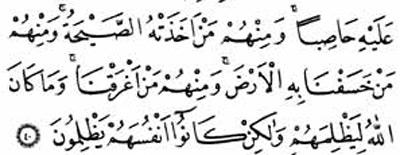 عَلَيْهِ حَاصِبًا ۚ وَمِنْهُمْ مَنْ اَخَذَتْهُ الصَّيْحَةُ ۚ وَمِنْهُمْ
مَنْ خَسَفْنَا بِهِ الْاَرْضَ ۚ وَمِنْهُمْ مَنْ اَغْرَقْنَا ۚ وَمَا كَانَ
اللّٰهُ لِيَظْلِمَهُمْ وَلٰكِنْ كَانُٓوا اَنْفُسَهُمْ يَظْلِمُونَ ﴿٤٠﴾